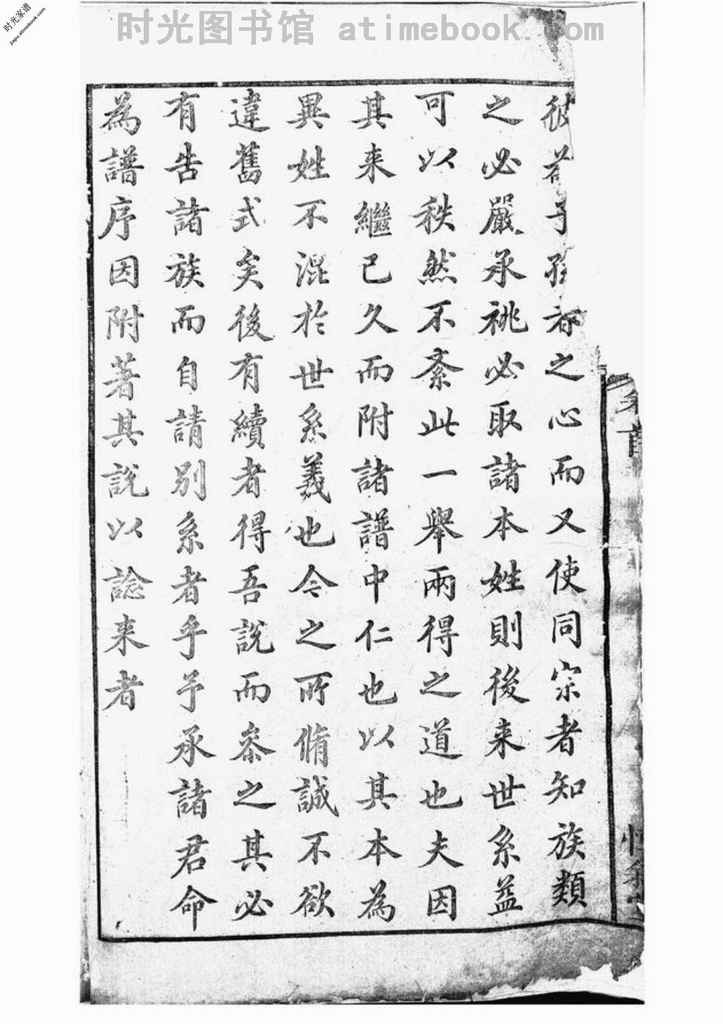 时光图书馆 atimebook.com
时光家谱
之心而又使同宗者知族類
之必嚴承祧必取諸本姓則後来世系益
可以秩然不紊此一舉兩得之道也夫因
其来繼已久而附諸譜中仁也以其本為
異姓不混於世系義也今之所脩誠不欲
違舊式矣後有續者得吾說而叅之其必
有告諸族而自請別系者乎予承諸君命
為譜序因附著其說以諗来者